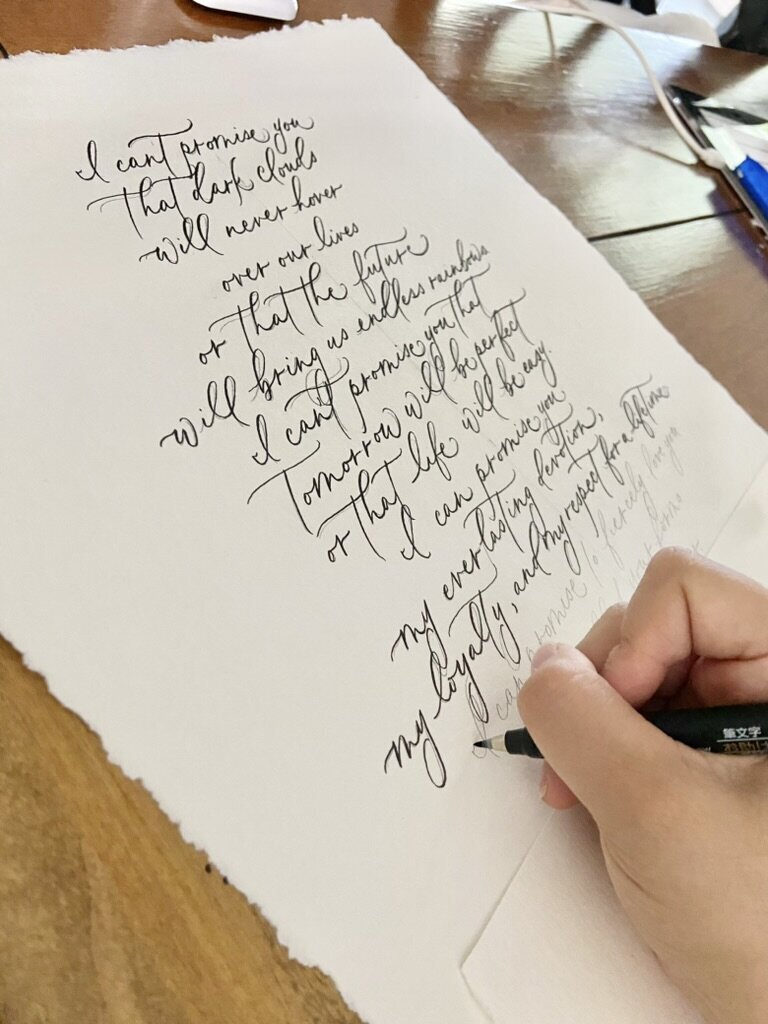 I can't promise you
That dark clouds
will never hover
over our lives
or that the future
will bring us endless rainbows
I can't promise you that
Tomorrow will be perfect
or that life will be easy.
I can promise you
my everlasting devotion,
my loyalty, and my respect for a lifetime
I can promise to fiercely love you
筆文字